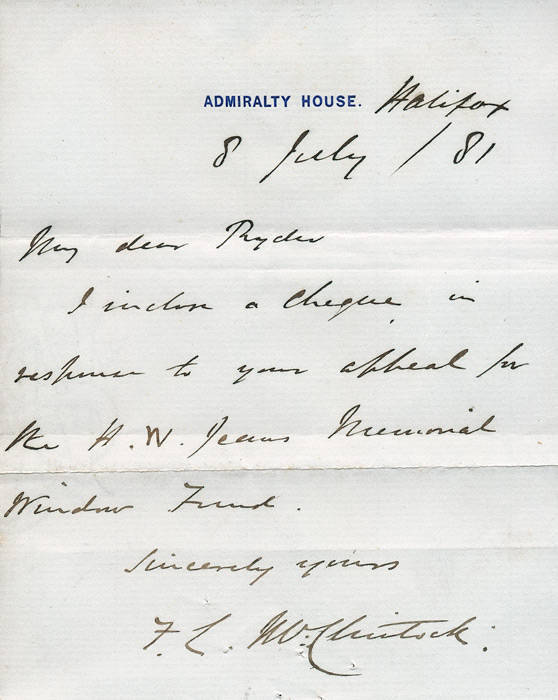 ADMIRALTY HOUSE. Halifax
8 July / 81
My dear Ryder
I inclose a cheque in
response to your appeal for
the H. W. Jeans Memorial
Window Fund.
Sincerely yours
F. L. McClintock.